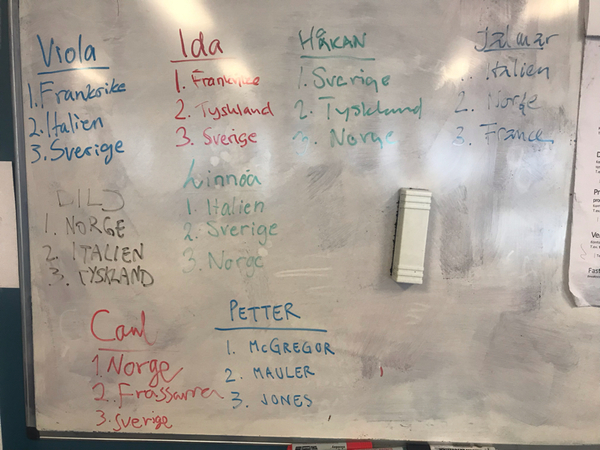 Viola
1. Frankrike
2. Italien
3. Sverige
Ida
1. Frankrike
2. Tyskland
3. Sverige
HÅKAN
1. Sverige
2. Tyskland
3. Norge
Italien
2. Norge
3. France
1. NORGE
2. ITALIEN
3. TYSKLAND
Linnéa
1. Italien
2. Sverige
3. Norge
Carl
1. Norge
2.
3. Sverige
PETTER
1. McGREGOR
2. MAULER
3. JONES